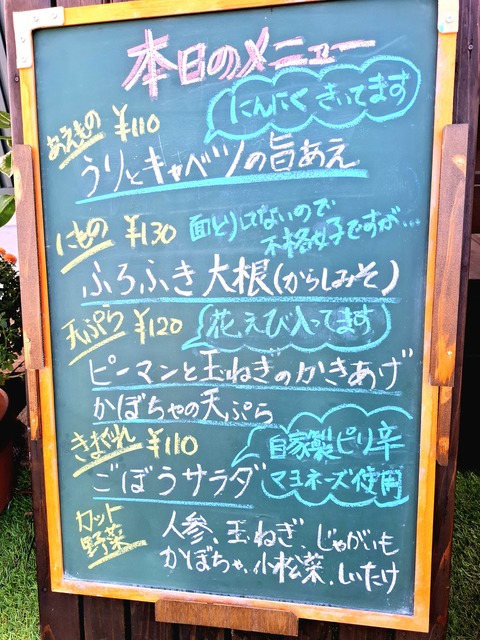 本日のメニュー
にんにく きいてます
あえもの ¥110
うりとキャベツの旨あえ
にもの ¥130
面とりしてないので
不格好ですが…
ふろふき大根(からしみそ)
天ぷら ¥120
花えび入ってます
ピーマンと玉ねぎのかきあげ
かぼちゃの天ぷら
きまぐれ ¥110
自家製ピリ辛
マヨネーズ使用
ごぼうサラダ
カット
野菜
人参、玉ねぎ、じゃがいも
かぼちゃ、小松菜、しいたけ